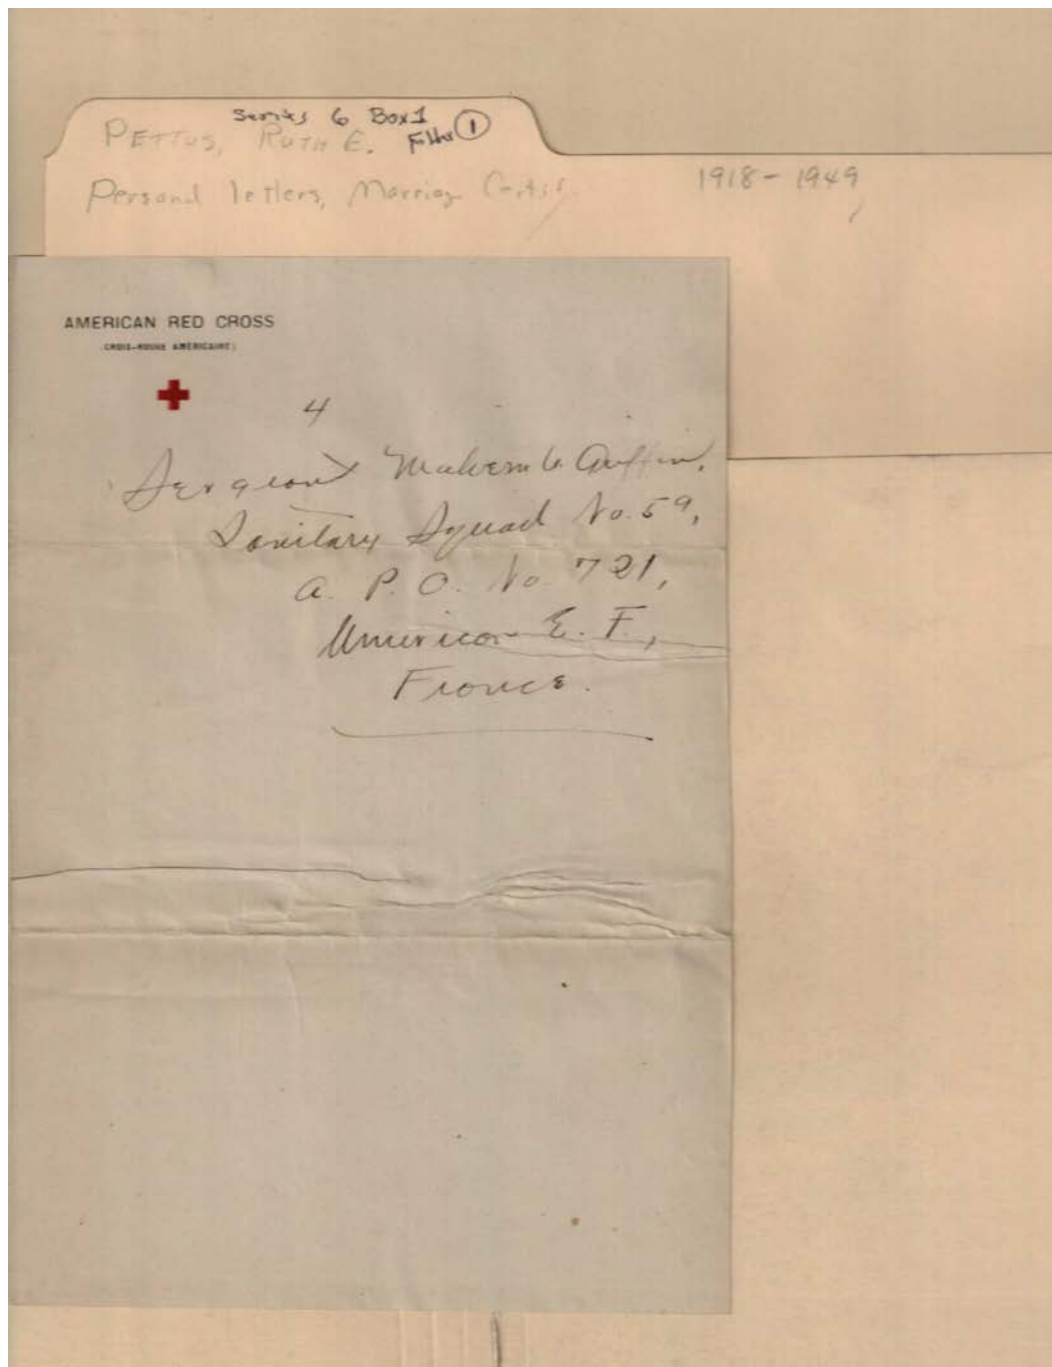 Series 6 Box 1
PETTUS, RUTH E. Folder 1
Personal letters, Marriage Certif.
1918-1949
AMERICAN RED CROSS
(CROIX-ROUGE AMÉRICAINE)
4
Sergeant Malvern Griffin,
Sanitary Squad No. 59,
A. P. O. No. 721,
American E. F.,
France.